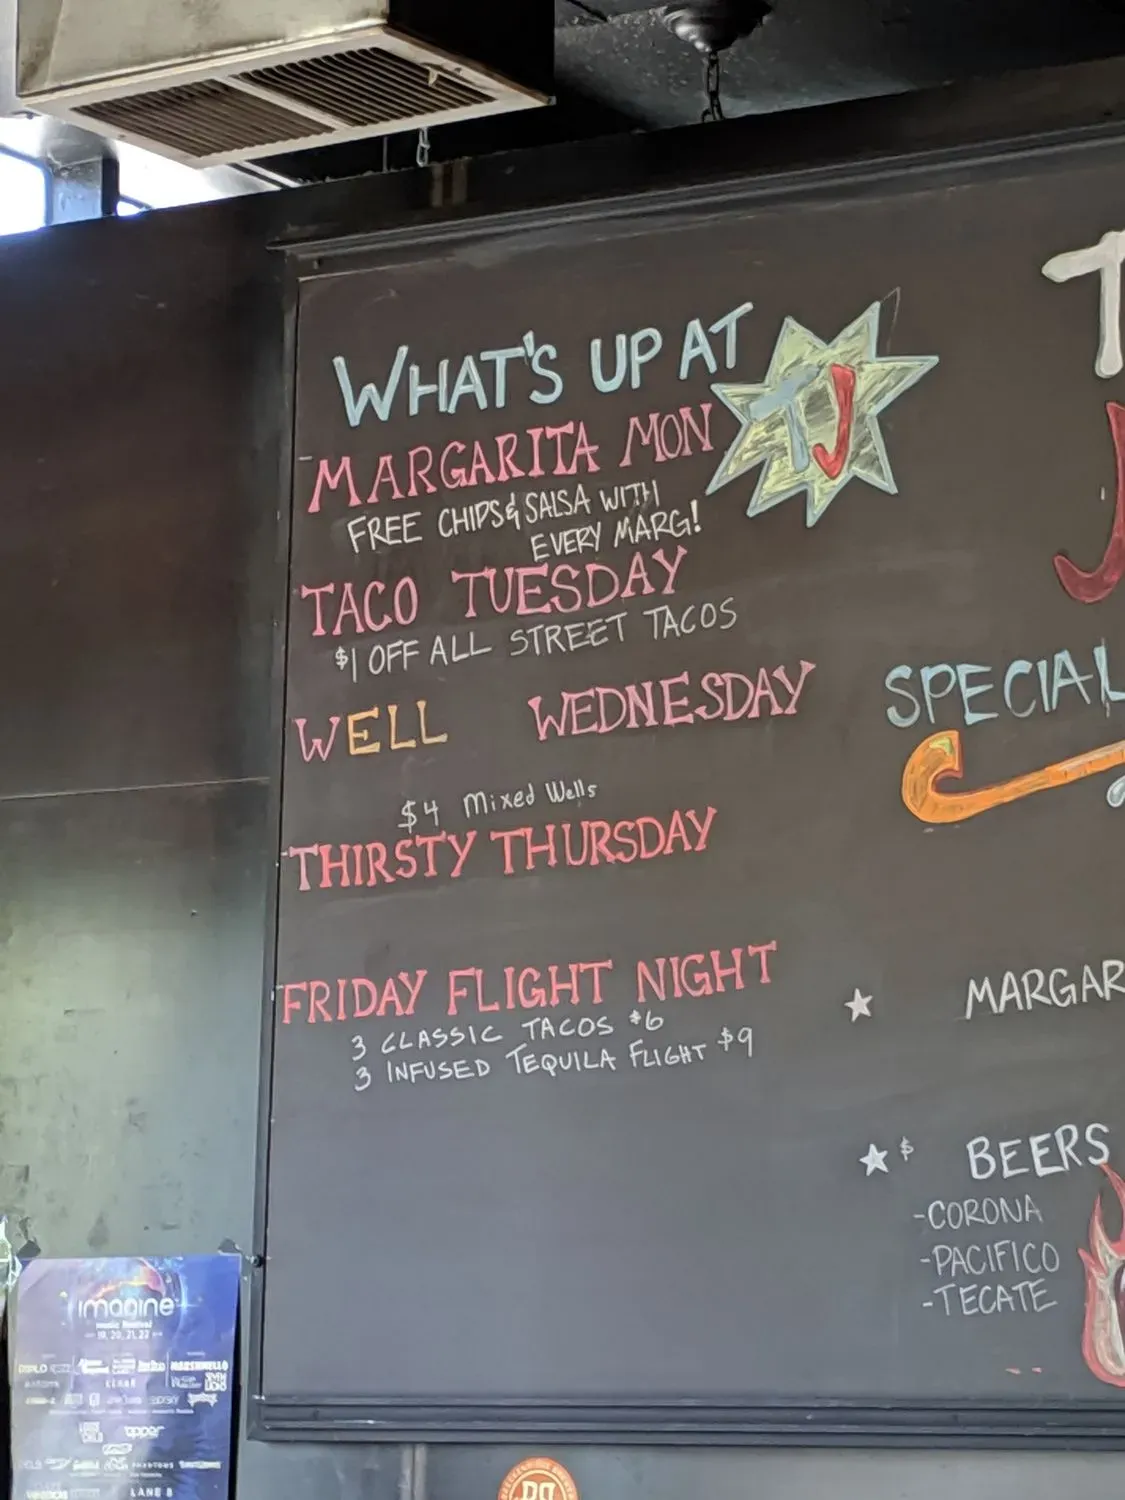 WHAT'S UP AT TJ
-MARGARITA MON
FREE CHIPS & SALSA WITH
EVERY MARG!
TACO TUESDAY
$1 OFF ALL STREET TACOS
WELL WEDNESDAY
$4 Mixed Wells
THIRSTY THURSDAY
FRIDAY FLIGHT NIGHT
3 CLASSIC TACOS $6
3 INFUSED TEQUILA FLIGHT $9
T
J
SPECIAL
MARGAR
$ BEERS
-CORONA
-PACIFICO
-TECATE
imagine
music festival
19, 20, 21, 22
DIPLO
MARSHMELLO
SEVEN LIONS
LANE 8